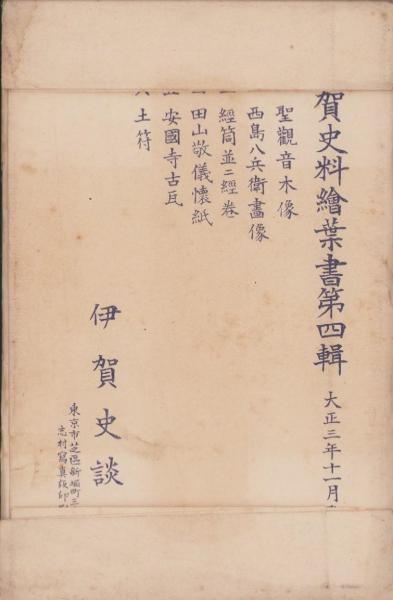 賀史料繪葉書第四輯 大正三年十一月
聖觀音木像
西島八兵衛畵像
經筒並ニ經卷
田山敬儀懷紙
安國寺古瓦
土符
伊賀史談
東京市芝區新堀町三
志村寫眞版印